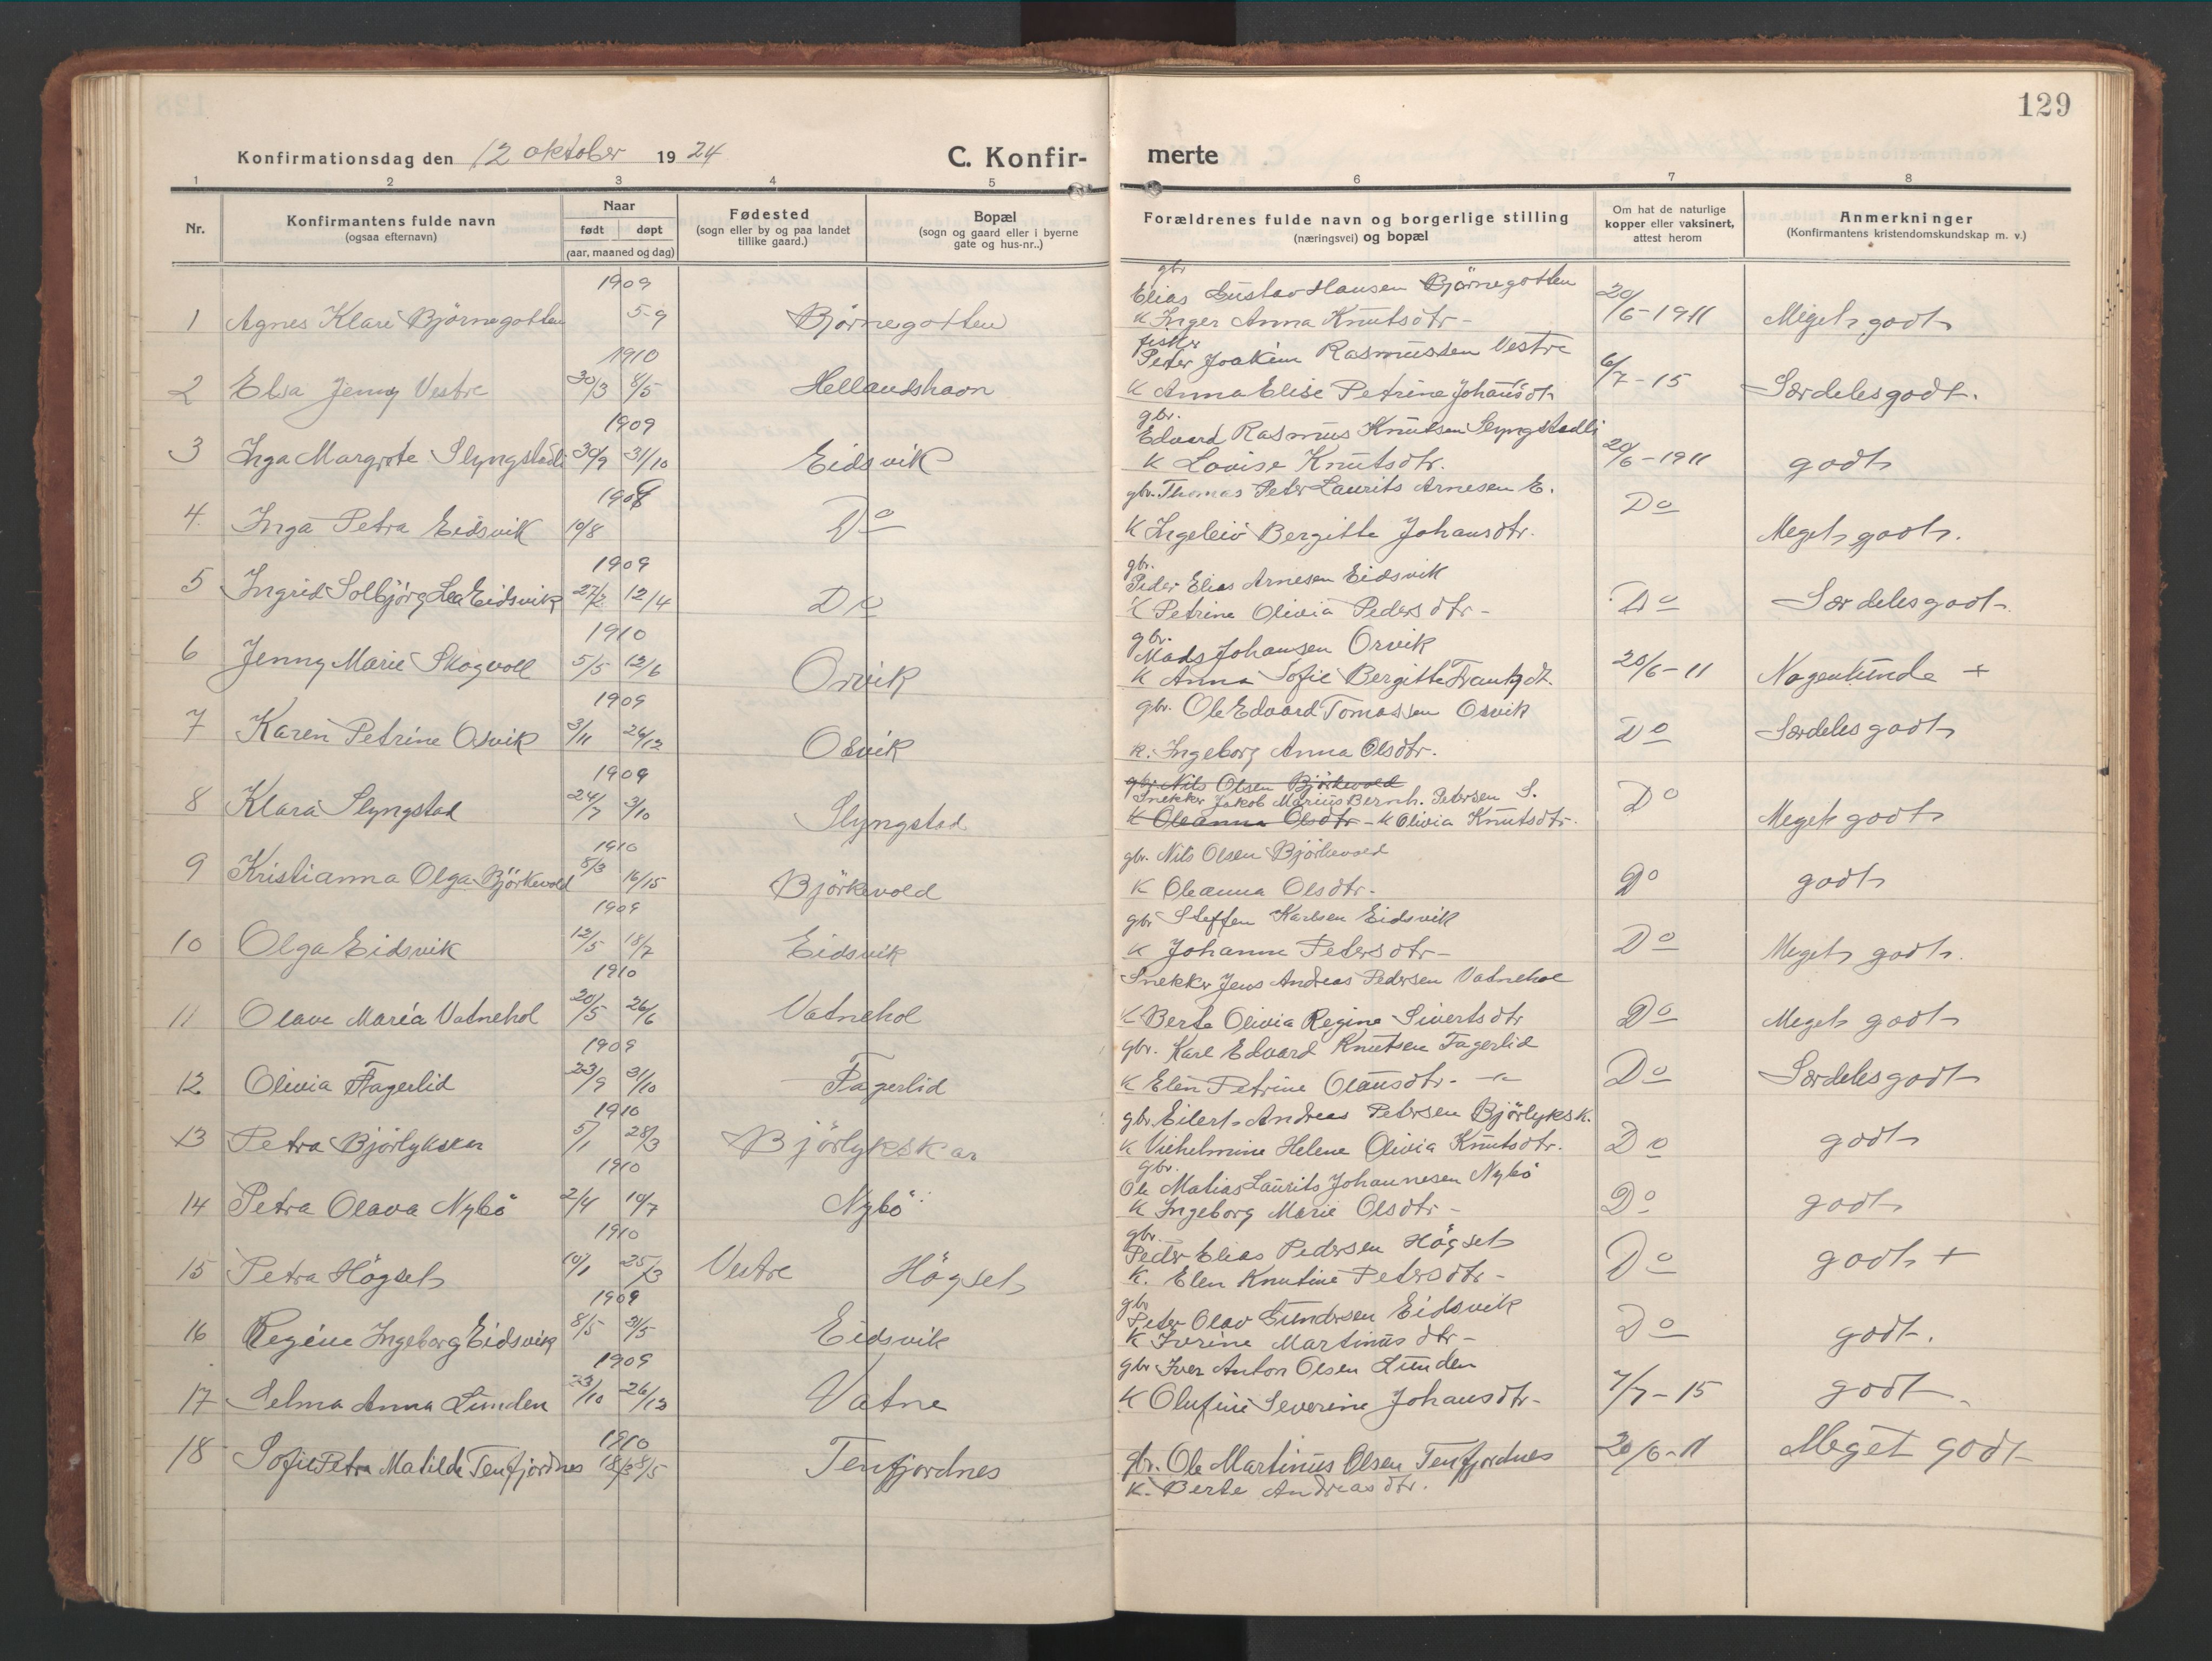 129
Konfirmationsdag den 12 oktober 1924
C. Konfir-
merte
1 2 3 4 5 6 7 8
Nr.
Konfirmantens fulde navn
(ogsaa efternavn)
Naar
født døpt
(aar, maaned og dag)
Fødested
(sogn eller by og paa landet
tillike gaard.)
Bopæl
(sogn og gaard eller i byerne
gate og hus-nr..)
Forældrenes fulde navn og borgerlige stilling
(næringsvei) og bopæl
Om hat de naturlige
kopper eller vaksinert,
attest herom
Anmerkninger
(Konfirmantens kristendomskundskap m. v.)
1909
gbr
Elias Gustav Hansen Björnegotten
1 Agnes Klare Björnegotten 5-9 Björnegotten K Inger Anna Knutsdtr - 20/6-1911 Meget godt
1910
fisker
Peter Joakim Rasmussen Vestre
2 Elsa Jenny Vestre 30/3 8/5 Hellandshavn K Anna Elise Petrine Johansdt 6/7-15 Særdeles godt.
1909
gbr.
Edvard Rasmus Knutsen Slyngstadli
3 Inga Margrete Slyngstadli 30/9 31/10 Eidsvik K Lovise Knutsdtr. 20/6-1911 godt
1909
gbr. Thomas Peter Laurits Arnesen E.
4. Inga Petra Eidsvik 10/8 Do K Ingeleiv Bergitte Johansdtr. Do Meget godt.
1909
gbr.
Peder Elias Arnesen Eidsvik
5 Ingrid Solbjörg Lea Eidsvik 27/2 12/4 Do K Petrine Olivia Pedersdtr - Do Særdeles godt
1910
gbr.
Mads Johansen Orvik
6 Jenny Marie Skogvoll 5/5 12/6 Orvik K Anna Sofie Bergitte Frantzdt. 20/6-11 Nogenlunde +
1909
gbr. Ole Edvard Tomassen Osvik
7 Karen Petrine Osvik 3/11 26/12 Osvik K. Ingeborg Anna Olsdtr. Do Særdeles godt
1909
gbr. Nils Olsen Björkevold
Snekker Jakob Marius Bernh. Petersen S.
8 Klara Slyngstad 24/7 3/10 Slyngstad K Oleanna Olsdtr - K Olivia Knutsdtr. Do Meget godt
1910
gbr. Nils Olsen Björkevold
9 Kristianna Olga Björkevold 8/3 16/15 Björkevold K Oleanna Olsdtr. Do godt
1909
gbr Steffen Karlsen Eidsvik
10 Olga Eidsvik 12/5 18/7 Eidsvik K Johanne Petersdtr - Do Meget godt.
1910
Snekker Jens Andreas Pedersen Vatnehol
11 Olave Maria Vatnehol 20/5 26/6 Vatnehol K Berte Olivia Regine Sivertsdtr Do Meget godt
1909
gbr. Karl Edvard Knutsen Fagerlid
12 Olivia Fagerlid 23/9 31/10 Fagerlid K Elen Petrine Olausdtr. Do Særdeles godt
1910
gbr. Eilert Andreas Petersen Björlyksk.
13 Petra Björlykskar 5/1 28/3 Björlykskar K Vielhelmine Helene Olivia Knutsdtr. Do godt
1910
gbr.
Ole Matias Laurits Johannesen Nybö
14 Petra Olava Nybö 2/4 10/7 Nybö K Ingeborg Marie Olsdtr - Do godt
1910
gbr.
Peder Elias Pedersen Högset
15 Petra Högset 10/1 25/3 Vestre Högset K. Elen Knutine Petersdtr - Do godt +
1909
gbr
Peter Olav Gundersen Eidsvik
16 Regine Ingeborg Eidsvik 8/5 31/5 Eidsvik K Ivrine Martinusdtr - Do godt.
1909
gbr Iver Anton Olsen Lunden
17 Selma Anna Lunden 23/10 26/12 Vatne K Olufine Severine Johansdtr - 7/7-15 godt
1910
18 Sofie Petra Matilde Tenfjordnes 18/3 8/5 Tenfjordnes gbr. Ole Martinus Olsen Tenfjordnes 20/6-11 Meget godt
K. Berte Andreasdtr.